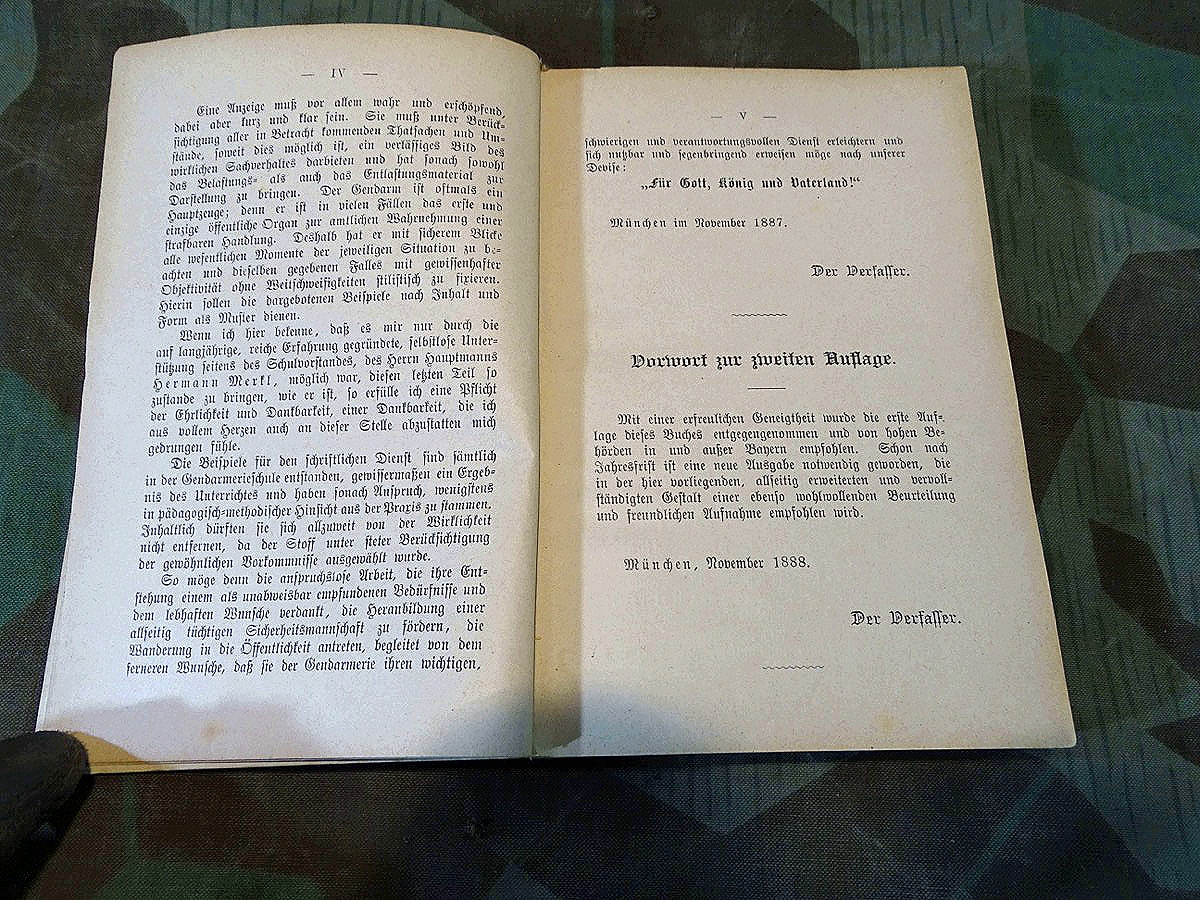 — IV —
Eine Anzeige muß vor allem wahr und erschöpfend,
dabei aber kurz und klar sein. Sie muß unter Berück-
sichtigung aller in Betracht kommenden Thatsachen und Um-
stände, soweit dies möglich ist, ein verlässiges Bild des
wirklichen Sachverhaltes darbieten und hat sonach sowohl
das Belastungs- als auch das Entlastungsmaterial zur
Darstellung zu bringen. Der Gendarm ist oftmals ein
Hauptzeuge; denn er ist in vielen Fällen das erste und
einzige öffentliche Organ zur amtlichen Wahrnehmung einer
strafbaren Handlung. Deshalb hat er mit sicherem Blicke
alle wesentlichen Momente der jeweiligen Situation zu be-
achten und dieselben gegebenen Falles mit gewissenhafter
Objektivität ohne Weitschweifigkeiten stilistisch zu fixieren.
Hierin sollen die dargebotenen Beispiele nach Inhalt und
Form als Muster dienen.
Wenn ich hier bekenne, daß es mir nur durch die
auf langjährige, reiche Erfahrung gegründete, selbstlose Unter-
stützung seitens des Schulvorstandes, des Herrn Hauptmanns
Hermann Merkl, möglich war, diesen letzten Teil so
zustande zu bringen, wie er ist, so erfülle ich eine Pflicht
der Ehrlichkeit und Dankbarkeit, einer Dankbarkeit, die ich
aus vollem Herzen auch an dieser Stelle abzustatten mich
gedrungen fühle.
Die Beispiele für den schriftlichen Dienst sind sämtlich
in der Gendarmerieschule entstanden, gewissermaßen ein Ergeb-
nis des Unterrichtes und haben sonach Anspruch, wenigstens
in pädagogisch-methodischer Hinsicht aus der Praxis zu stammen.
Inhaltlich dürften sie sich allzuweit von der Wirklichkeit
nicht entfernen, da der Stoff unter steter Berücksichtigung
der gewöhnlichen Vorkommnisse ausgewählt wurde.
So möge denn die anspruchslose Arbeit, die ihre Ent-
stehung einem als unabweisbar empfundenen Bedürfnisse und
dem lebhaften Wunsche verdankt, die Heranbildung einer
allseitig tüchtigen Sicherheitsmannschaft zu fördern, die
Wanderung in die Öffentlichkeit antreten, begleitet von dem
ferneren Wunsche, daß sie der Gendarmerie ihren wichtigen,
— V —
schwierigen und verantwortungsvollen Dienst erleichtern und
sich nutzbar und segenbringend erweisen möge nach unserer
Devise:
„Für Gott, König und Vaterland!“
München im November 1887.
Der Verfasser.
Vorwort zur zweiten Auflage.
Mit einer erfreulichen Geneigtheit wurde die erste Auf-
lage dieses Buches entgegengenommen und von hohen Be-
hörden in und außer Bayern empfohlen. Schon nach
Jahresfrist ist eine neue Ausgabe notwendig geworden, die
in der hier vorliegenden, allseitig erweiterten und vervoll-
ständigten Gestalt einer ebenso wohlwollenden Beurteilung
und freundlichen Aufnahme empfohlen wird.
München, November 1888.
Der Verfasser.